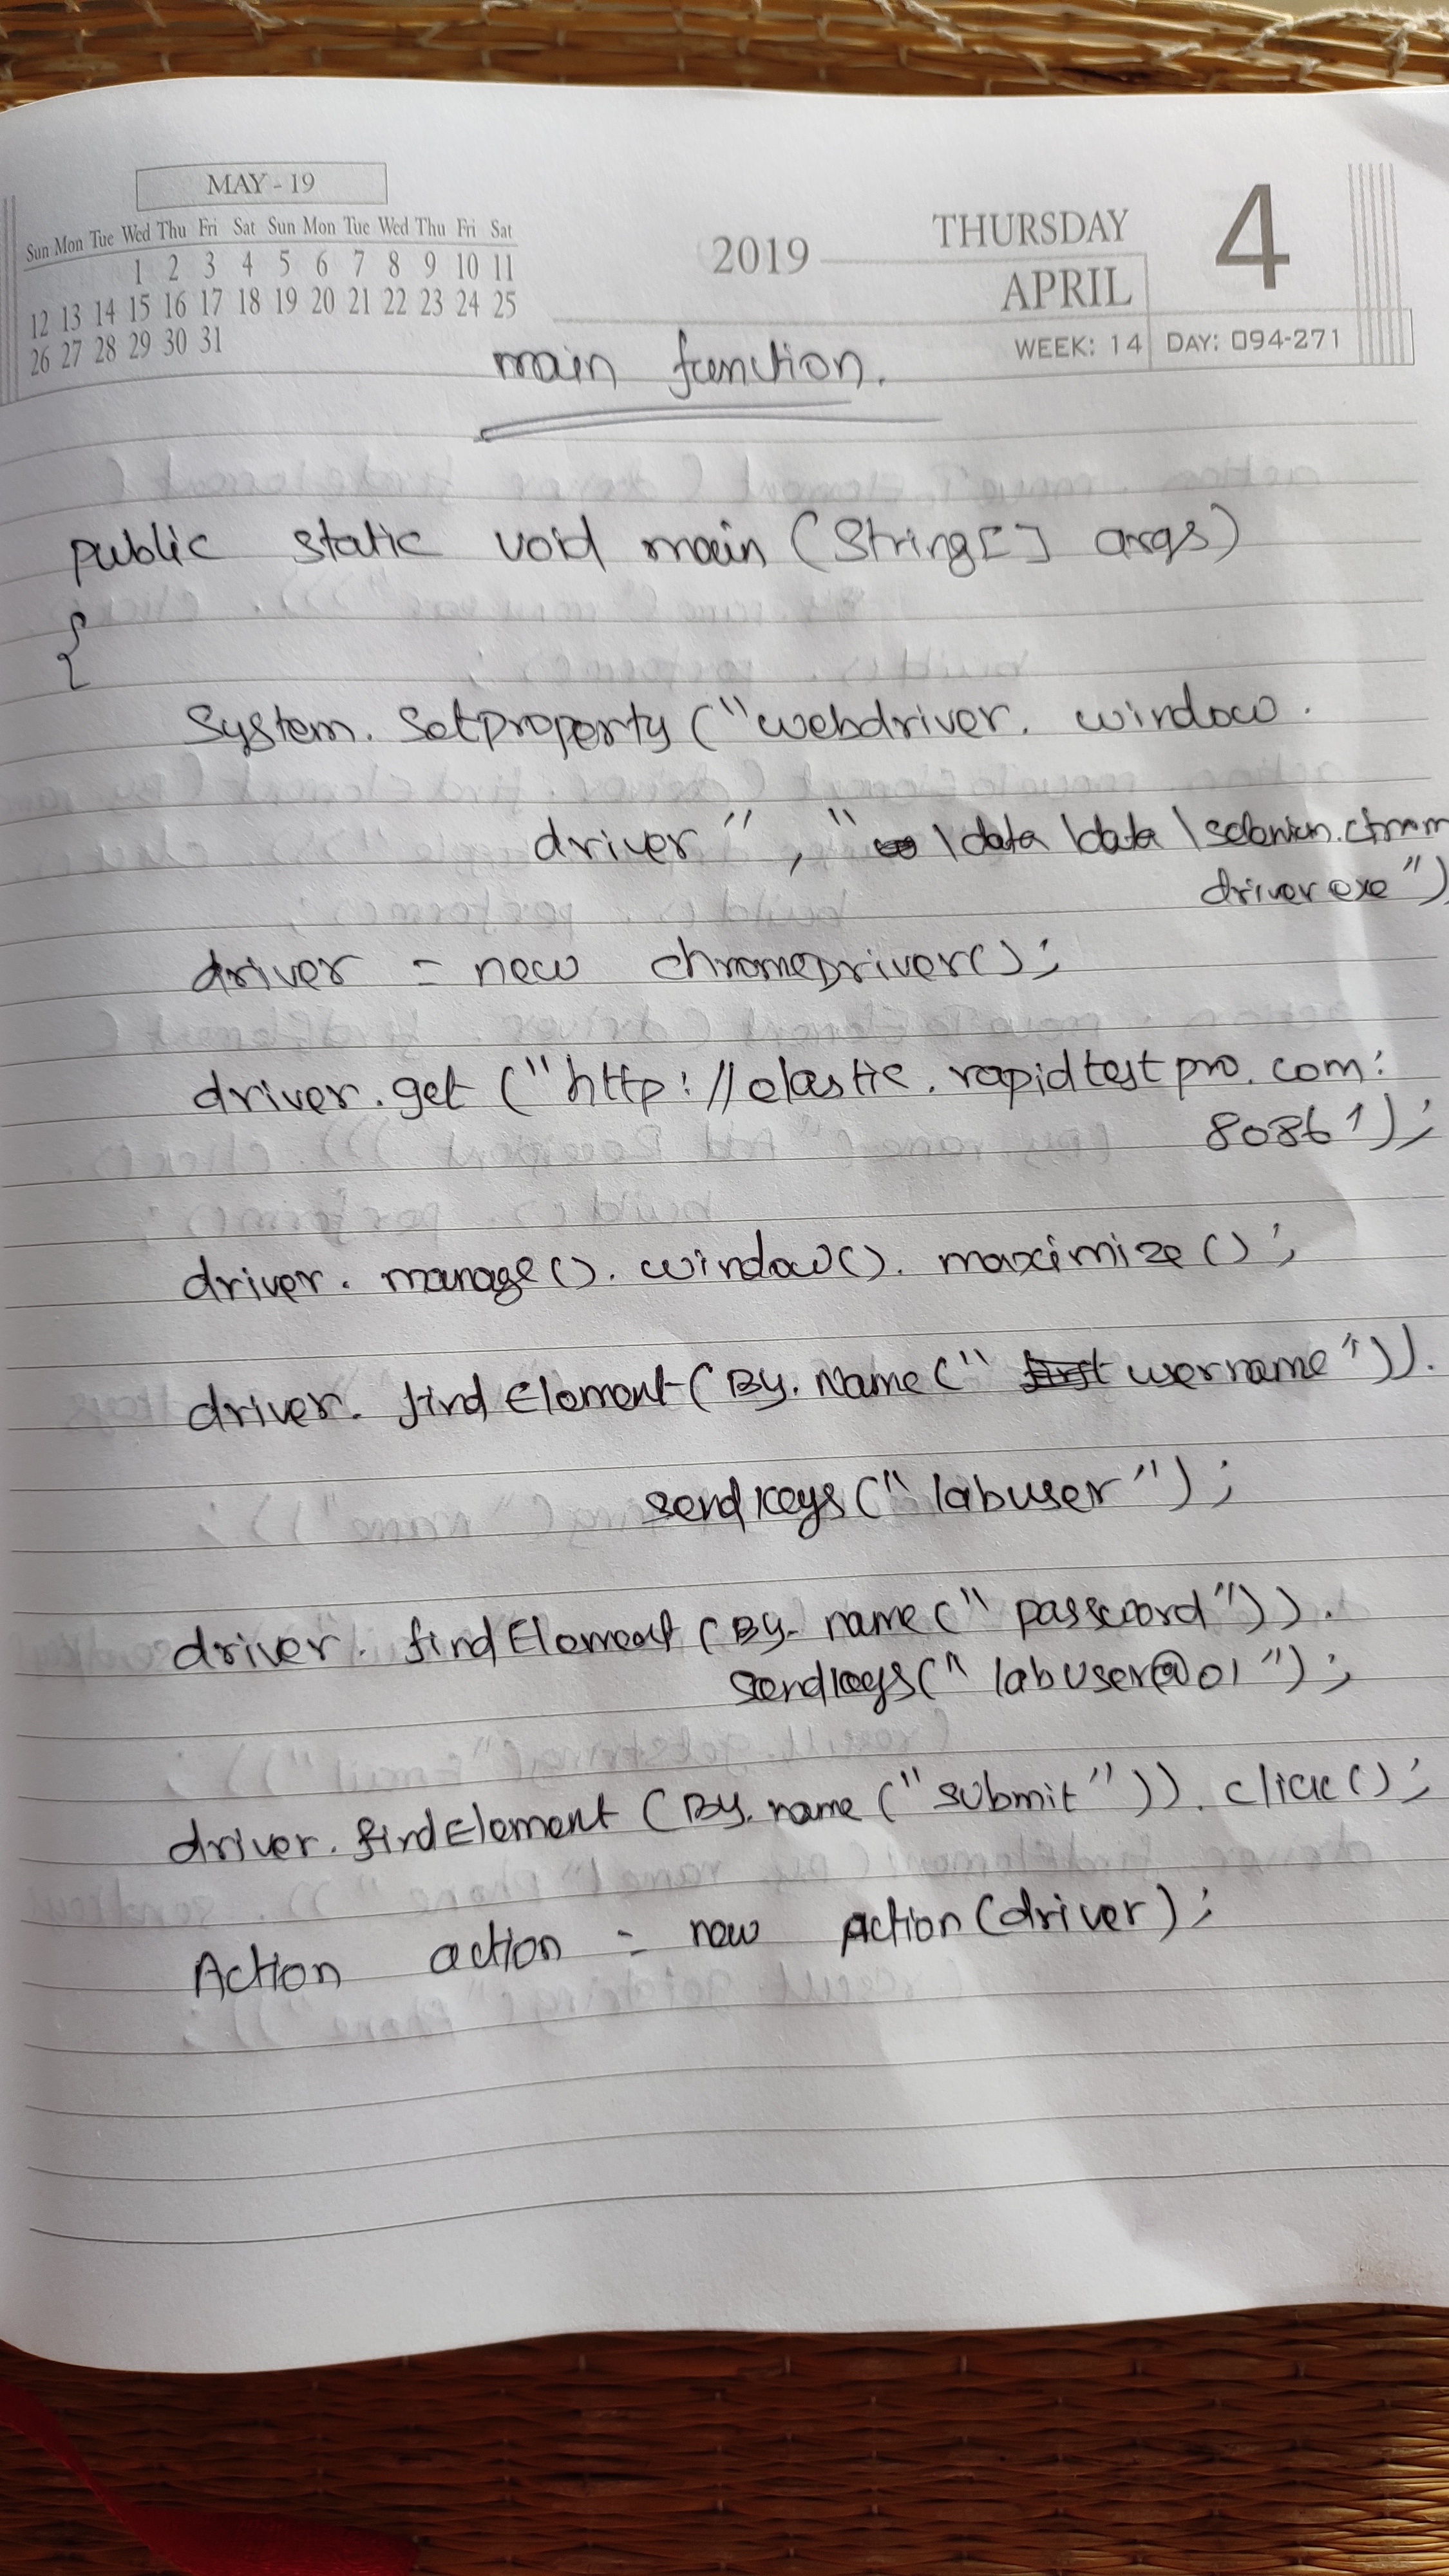 MAY - 19
Sun Mon Tue Wed Thu Fri Sat Sun Mon Tue Wed Thu Fri Sat
1 2 3 4 5 6 7 8 9 10 11
12 13 14 15 16 17 18 19 20 21 22 23 24 25
26 27 28 29 30 31
2019
THURSDAY
APRIL
4
WEEK: 14 DAY: 094-271
main function.
public static void main (String[] args)
{
System. SetProperty ("webdriver. window.
driver", "\data \data \selenium.chrom
driver exe")
driver = new chromeDriver();
driver.get ("http://elastic.rapidtestpro.com:
8086");
driver. manage(). window(). maximize();
driver. find Element (By. Name (" username")).
sendkeys(" labuser");
driver. findElement (By. name (" password")).
sendkeys(" labuser@01");
driver. findElement (By. name ("submit")). click();
Action action = new Action(driver);